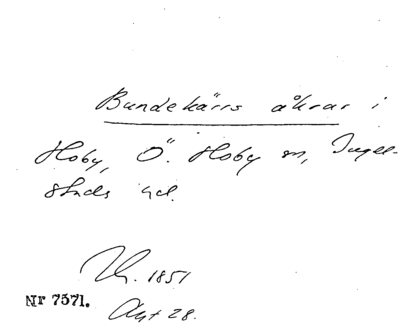 Bundekärrs åkrar i
Hoby, Ö. Hoby sn, Ingel-
stads hd.
1851
Nr 7571.
Akt 28.